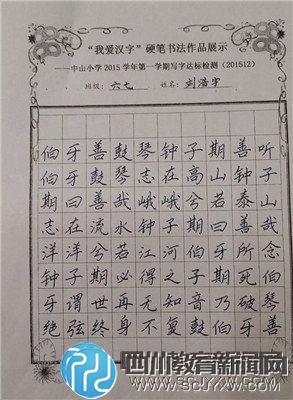 “我爱汉字”硬笔书法作品展示
——中山小学2015学年第一学期写字达标检测（201512）
班级：六七 姓名：刘浩宇
伯牙善鼓琴钟子期善听
伯牙鼓琴志在高山钟子
期曰善哉峨峨兮若泰山
志在流水钟子期曰善哉
洋洋兮若江河伯牙所念
钟子期必得之子期死伯
牙谓世再无知音乃破琴
绝弦终身不复鼓伯牙善
四川教育新闻网
www.SCJYXW.com